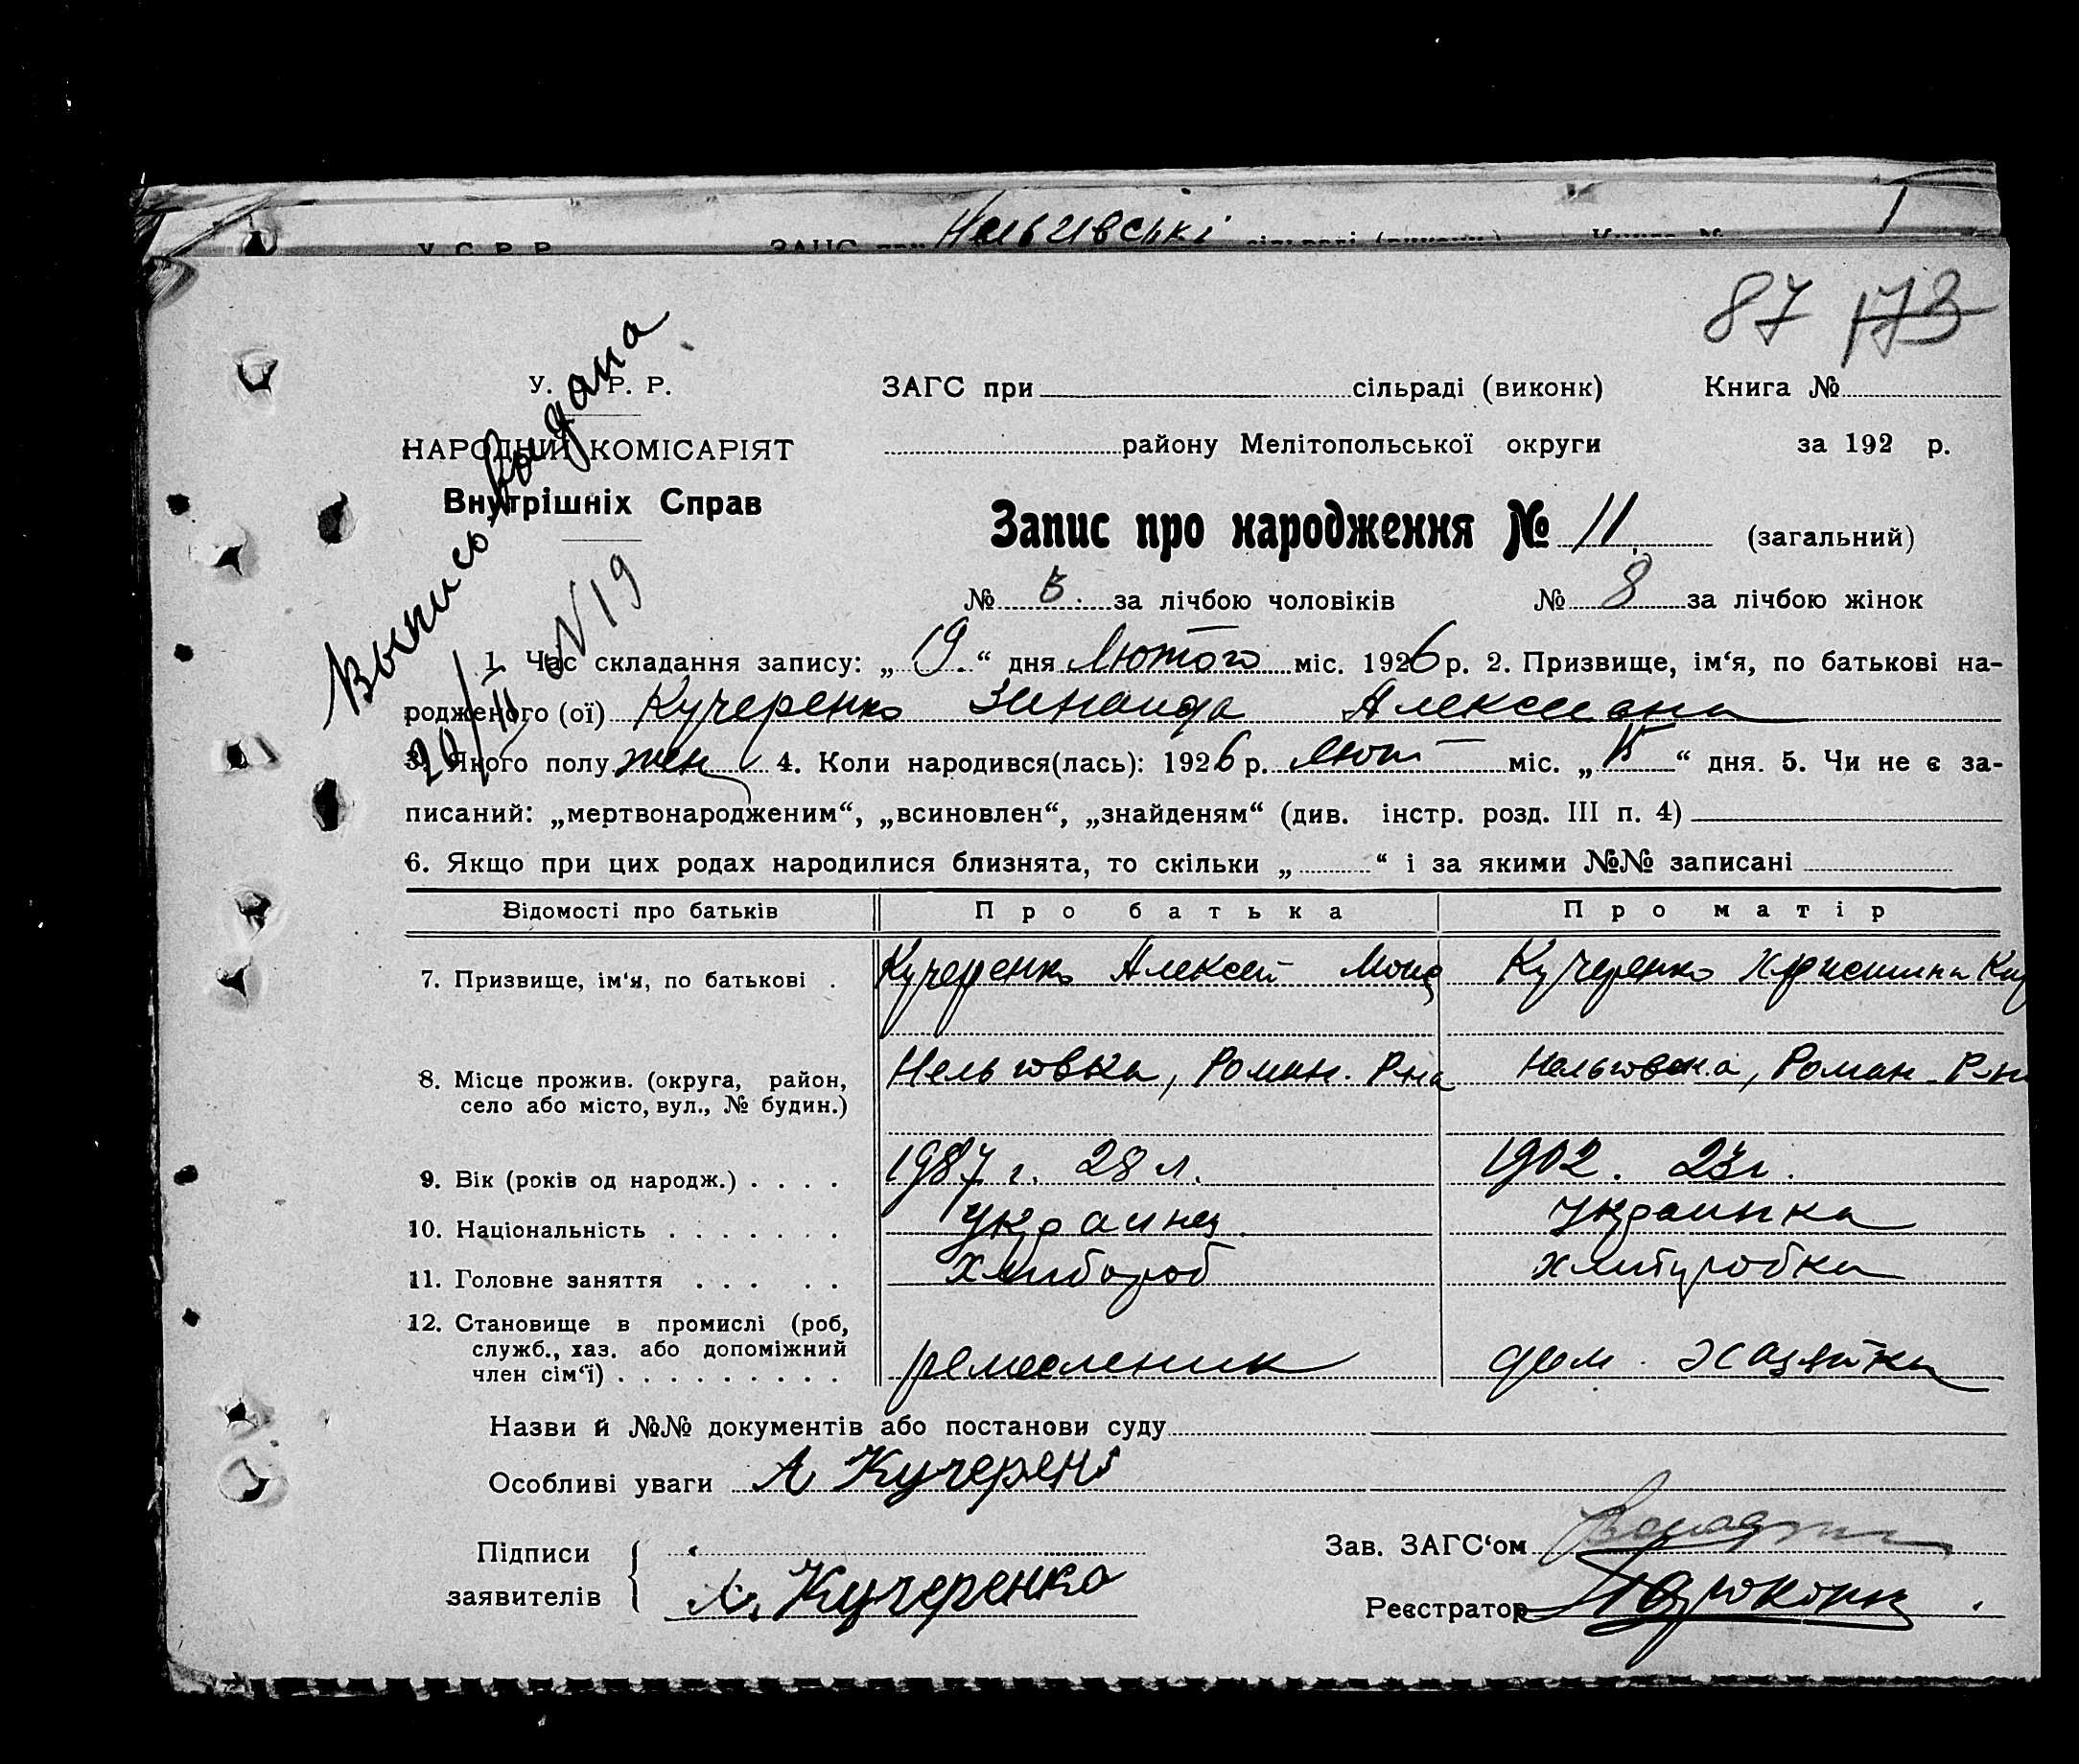 Нельгивські
1
У. С. Р. Р. ЗАГС при сільраді (виконк) Книга №
87 173
Выпись выдана
20/II N 19
У. Р. Р.
НАРОДНИЙ КОМІСАРІЯТ
Внутрішніх Справ
ЗАГС при сільраді (виконк) Книга №
району Мелітопольської округи за 192 р.
Запис про народження № 11. (загальний)
№ за лічбою чоловіків № 8 за лічбою жінок
1. Час складання запису: „19.“ дня Лютого міс. 1926 р. 2. Призвище, ім‘я, по батькові на-
родженого (ої) Кучеренко Зинаида
3. Якого полу жен 4. Коли народився(лась): 1926 р. Лют міс. „ “ дня. 5. Чи не є за-
писаний: „мертвонародженим“, „всиновлен“, „знайденям“ (див. інстр. розд. III п. 4)
6. Якщо при цих родах народилися близнята, то скільки „ “ і за якими №№ записані
Відомості про батьків Про батька Про матір
7. Призвище, ім‘я, по батькові . Кучеренко Алексей Кучеренко Христина
8. Місце прожив. (округа, район, Нельговка, Роман. Рна Нельговка, Роман. Р-н
село або місто, вул., № будин.)
9. Вік (років од народж.) . . . . 1987 г. 28 л. 1902. 23 г.
10. Національність . . . . . . . украинец. украинка
11. Головне заняття . . . . . хлибороб
12. Становище в промислі (роб,
служб., хаз. або допоміжний
член сім‘ї) . . . . . . . . . ремесленик дом. хазяйка
Назви й №№ документів або постанови суду
Особливі уваги А Кучерен
Підписи Зав. ЗАГС‘ом
заявителів Кучеренко Реєстратор